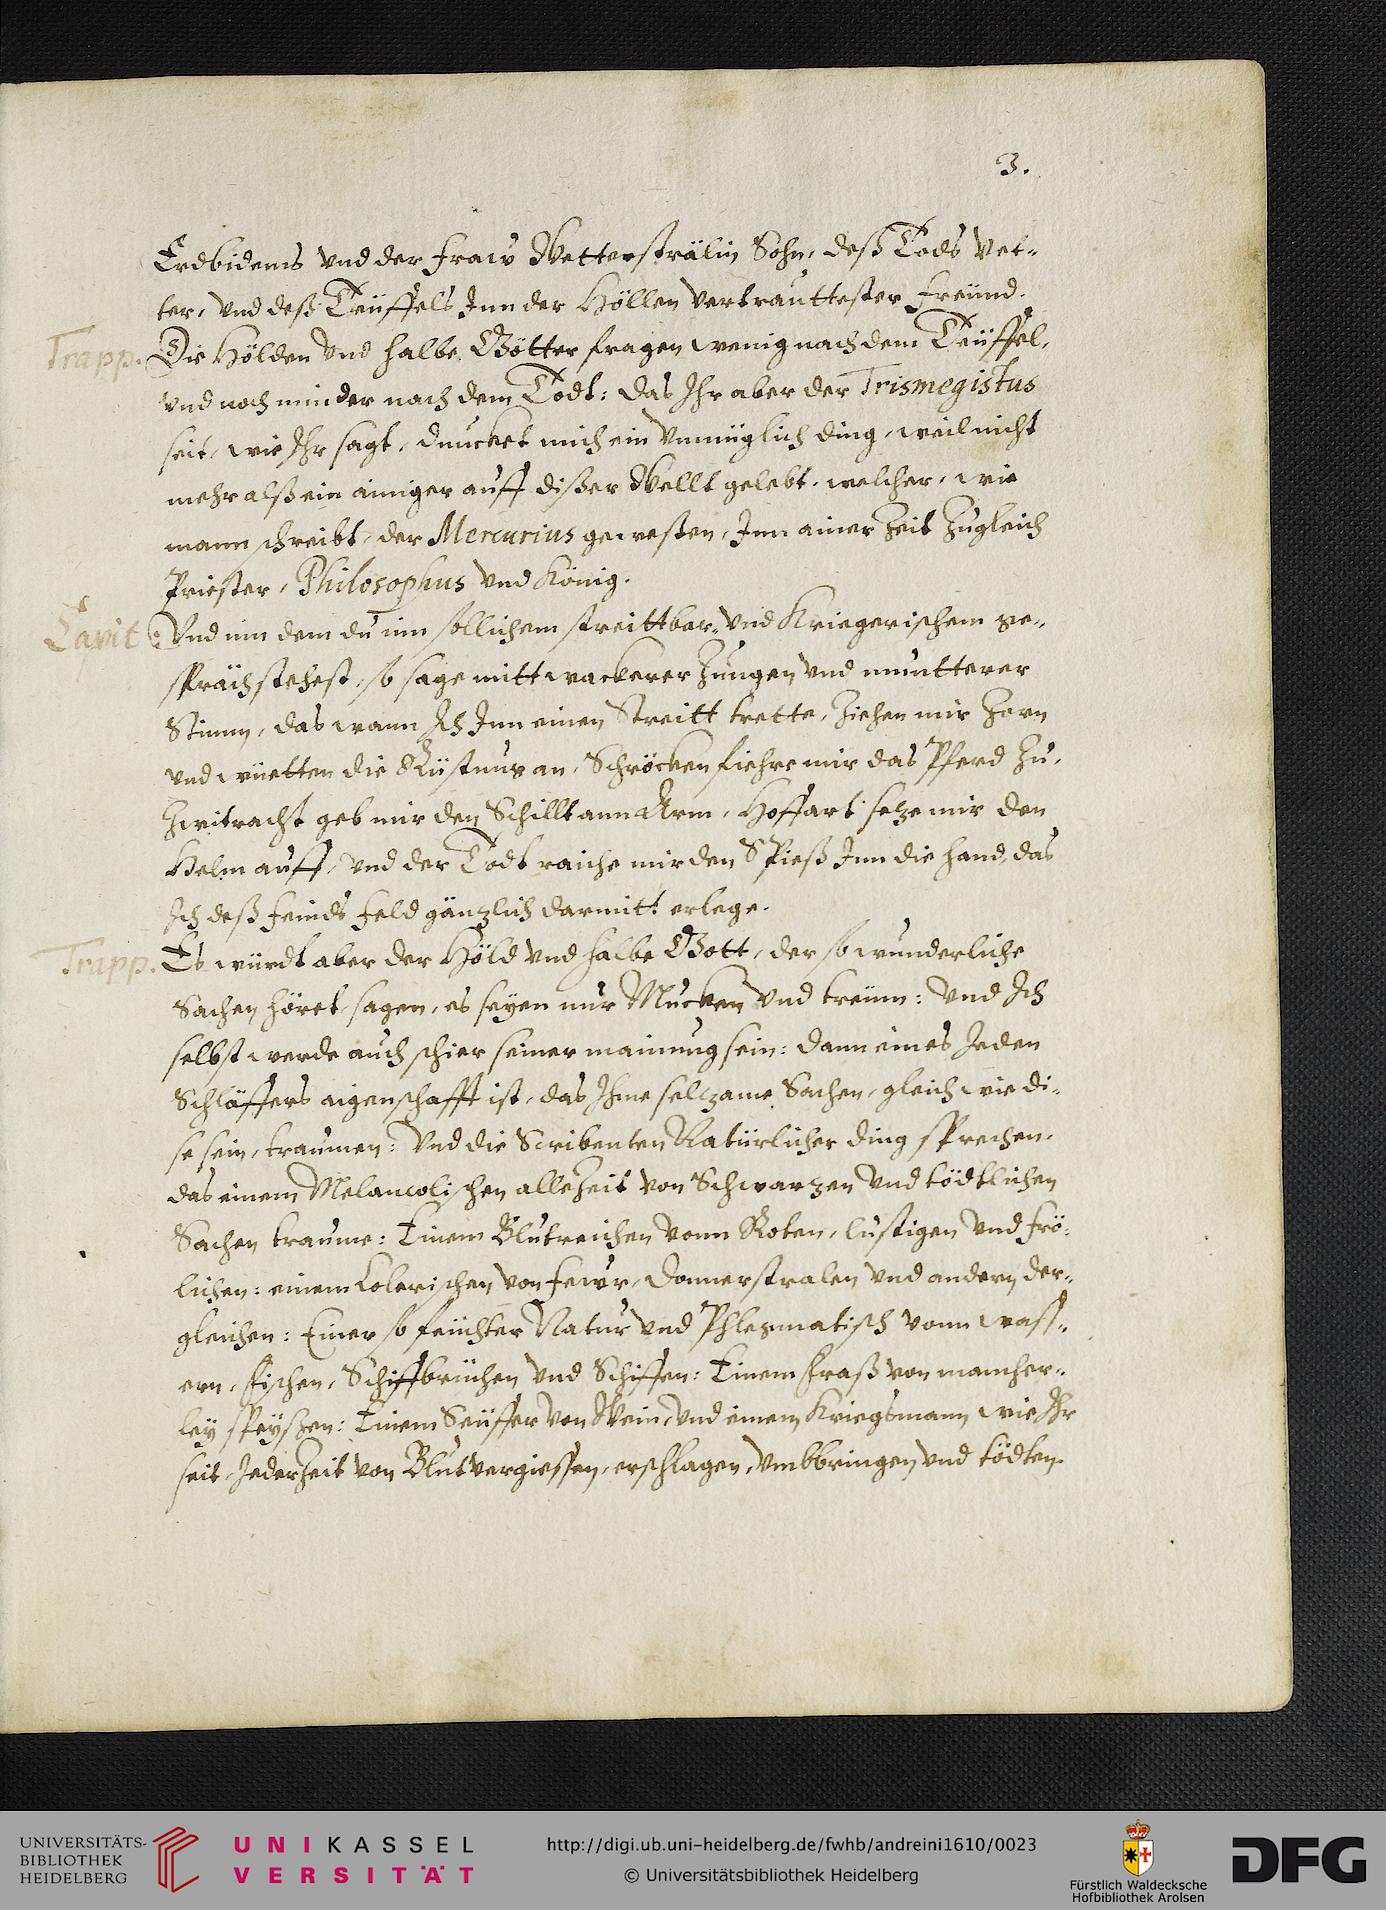 3.
Erdbidems vnd der fraw Wettersträlin Sohn, deß Tods Vet-
ter, vnd deß Teüffels Inn der Höllen vertrauttester freünd.
Trapp. Die Hölden vnd halbe Götter fragen wenig nach dem Teüffel,
vnd noch minder nach dem Todt: das Ihr aber der Trismegistus
seit, wie Ihr sagt, duncket mich ein vnmüglich ding, weil nicht
mehr alß ein ainiger auff dißer Wellt gelebt, welcher, wie
mann schreibt, der Mercurius geweßen, Inn ainer Zeit zugleich
Priester, Philosophus vnd König.
Capit: Vnd inn dem du inn sollichem streittbar, vnd Kriegerischem ge-
spräch stehest, so sage mitt wackerer Zungen vnd muntterer
Stimm, das wann Ich Inn einen Streitt trette, ziehen mir Zorn
vnd wüetten die Rüstung an, Schröcken fiehre mir das Pferd zu,
Zwitracht geb mir den Schillt ann Arm, Hoffart seze mir den
Helm auff, vnd der Todt raiche mir den Spieß Inn die hand, das
Ich deß feinds feld gänzlich darmitt erlege.
Trapp. Es würdt aber der Höld vnd halbe Gott, der so wunderliche
Sachen höret, sagen, es seyen nur Mucken vnd treüm: vnd Ich
selbst werde auch schier seiner mainung sein: dann eines Jeden
Schläffers aigenschafft ist, das Ihme selzame Sachen, gleich wie di-
se sein, traumen: vnd die Scribenten Natürlicher ding sprechen,
das einem Melancolischen allezeit von Schwarzen vnd tödtlichen
Sachen traume: Einem Blutreichen vonn Roten, lustigen vnd frö-
lichen: einem Colerischen von fewr, Donnerstralen vnd andern der-
gleichen: Einer so feüchter Natur vnd Phlegmatisch vonn wass-
ern, fischen, Schiffbrüchen vnd Schiffen: Einem fraß von mancher-
ley speyßen: Einem Seüffer von Wein, vnd einem Kriegsmann wie Ihr
seit, Jederzeit von Blutvergiessen, erschlagen, vmbbringen vnd tödten.
UNIVERSITÄTS-
BIBLIOTHEK
HEIDELBERG
UNIKASSEL
VERSITÄT
http://digi.ub.uni-heidelberg.de/fwhb/andreini1610/0023
© Universitätsbibliothek Heidelberg
Fürstlich Waldecksche
Hofbibliothek Arolsen
DFG